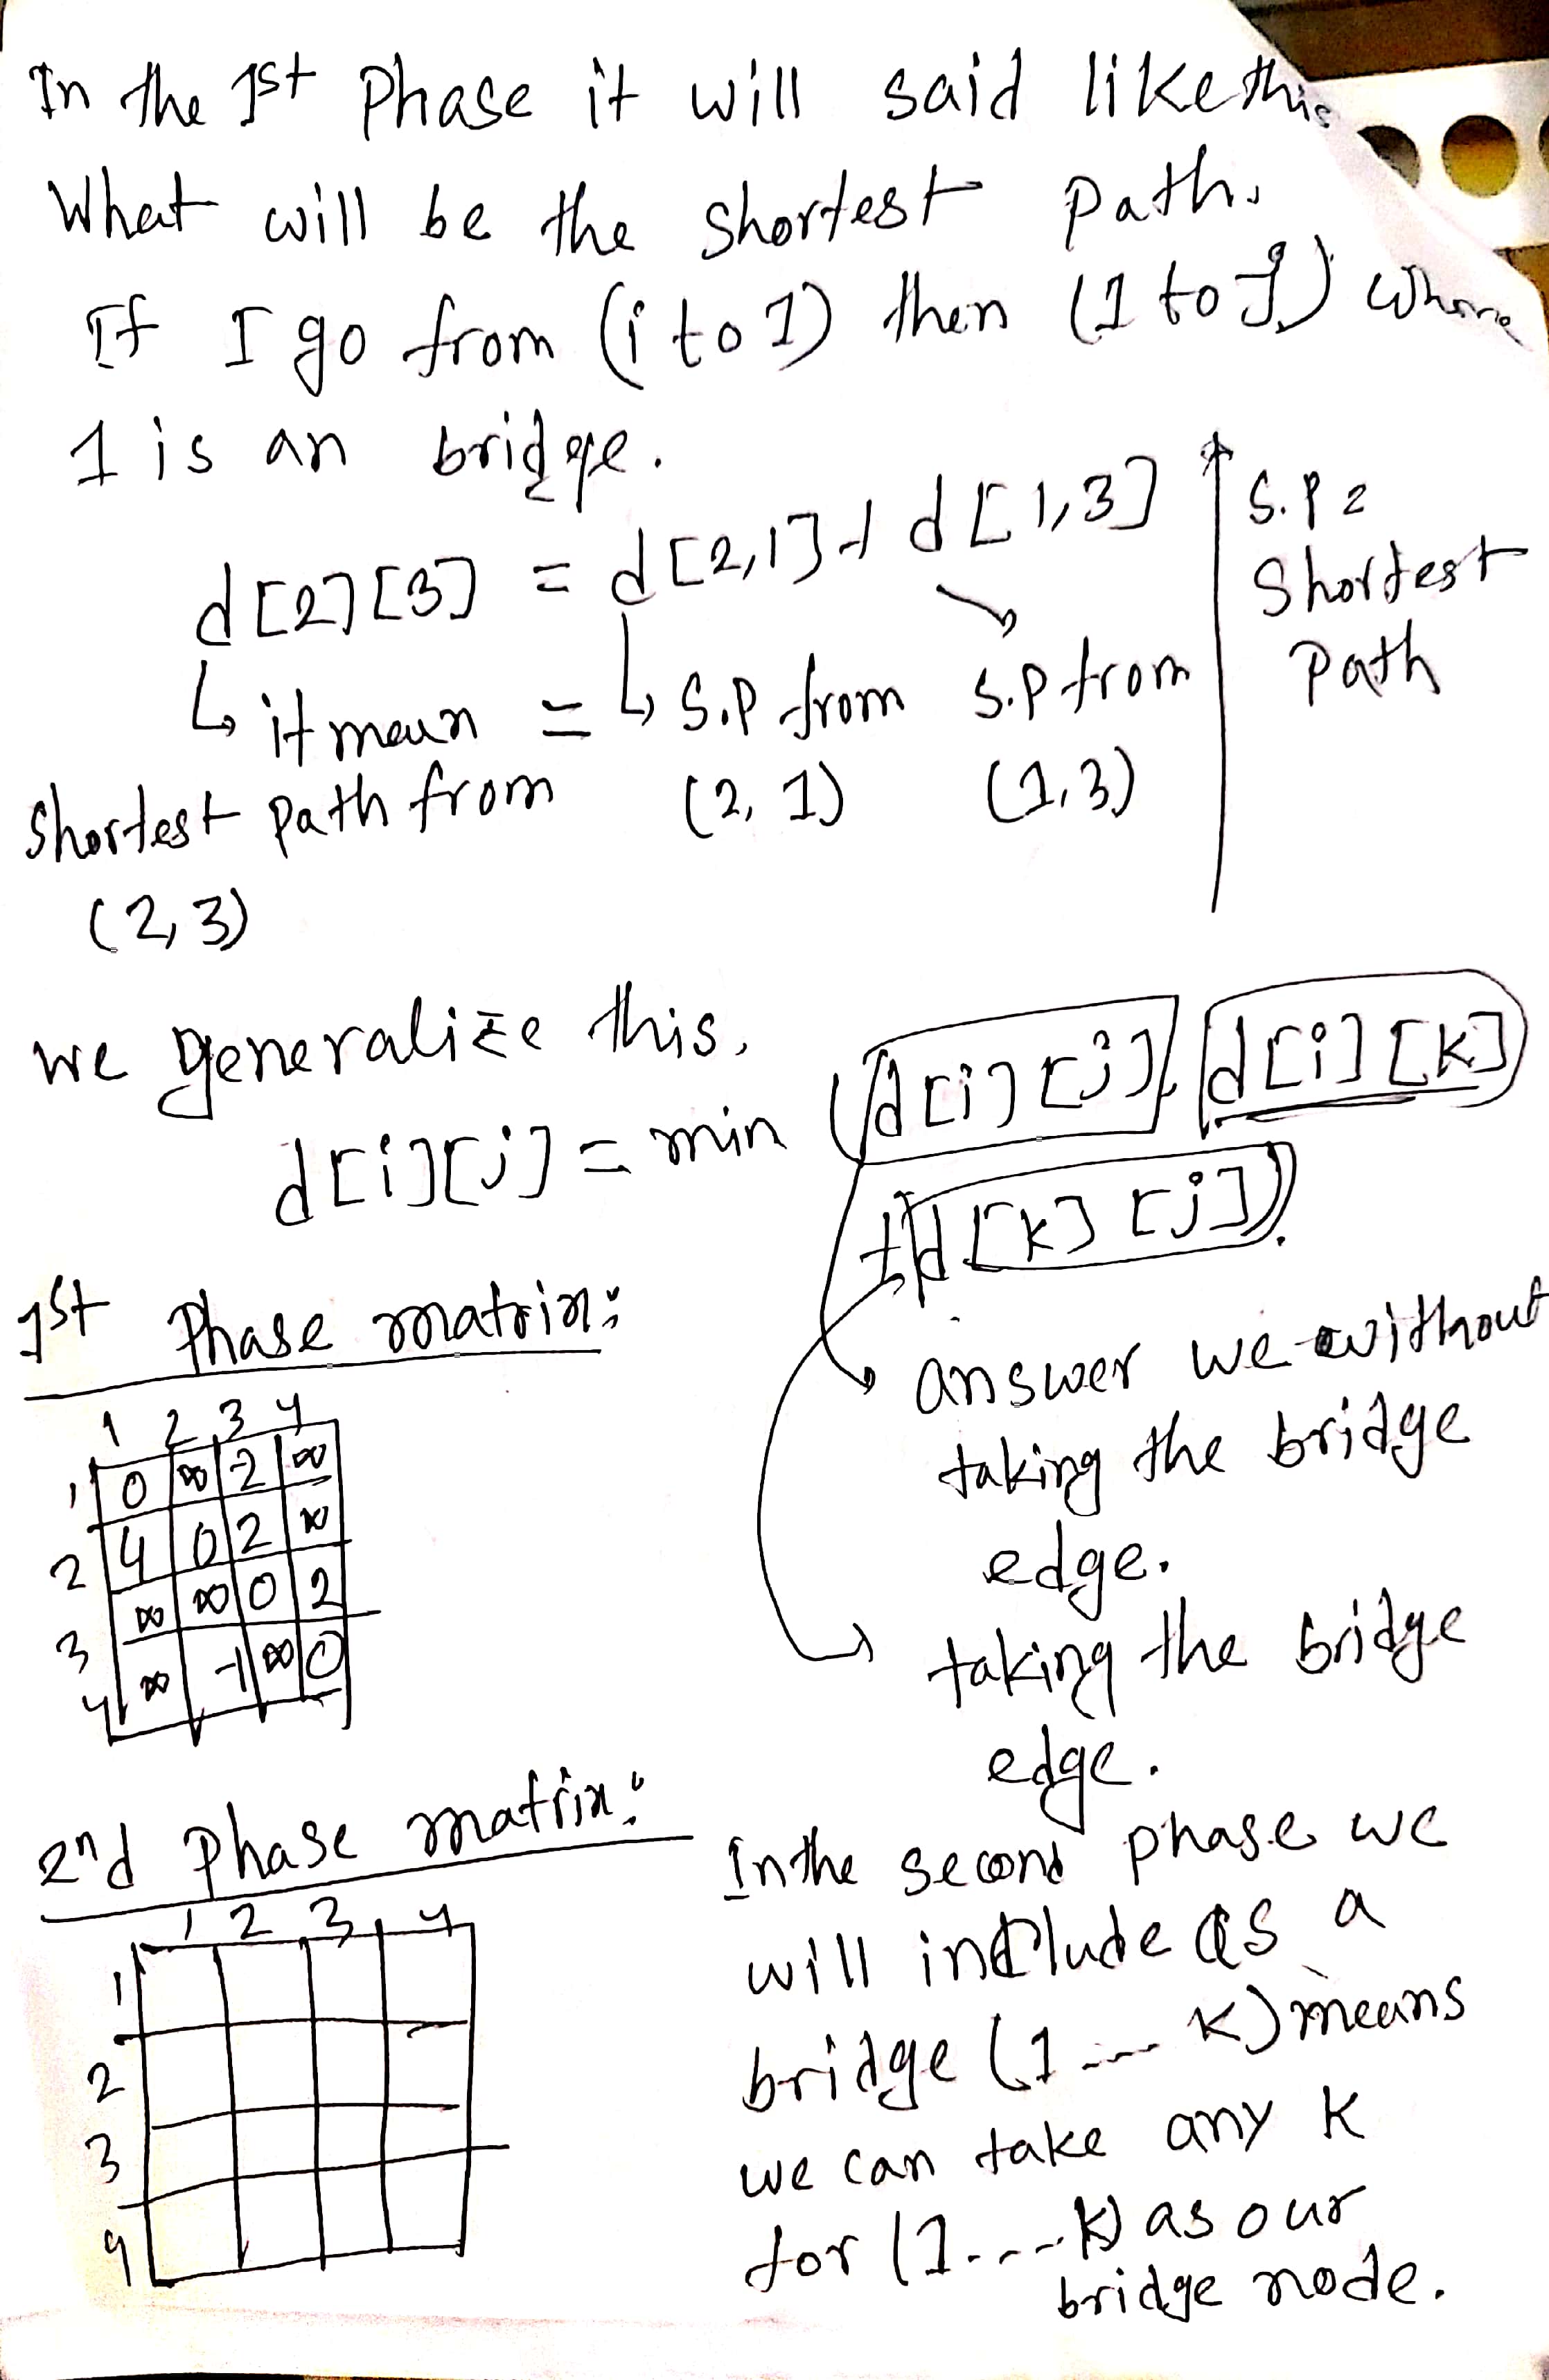 In the 1st Phase it will said like this
What will be the shortest path.
If I go from (i to 1) then (1 to j) where
1 is an bridge.
d[2][3] = d[2,1] + d[1,3]
↳ it mean = ↳ S.P from S.P from
shortest path from (2, 1) (1,3)
(2,3)
S.P =
Shortest
Path
we generalize this.
d[i][j] = min (d[i][j], d[i][k]
+ d[k][j]).
answer we without
taking the bridge
edge.
taking the bridge
edge.
1st Phase matrix:
1 2 3 4
1 0 ∞ -2 ∞
2 4 0 2 ∞
3 ∞ ∞ 0 2
4 ∞ -1 ∞ 0
2nd Phase matrix:
1 2 3 4
1
2
3
4
In the second phase we
will include as a
bridge (1 --- k) means
we can take any k
for (1 ---- k) as our
bridge node.